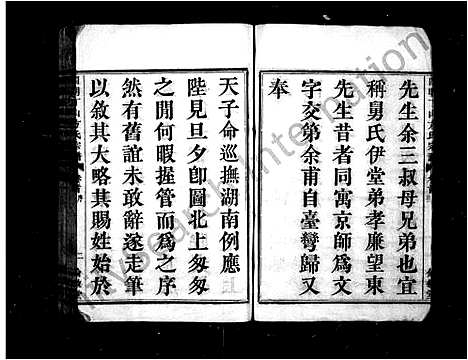 先生余三叔母兄弟也宜
稱舅氏伊堂弟孝廉望東
先生昔者同寓京師爲文
字交第余甫自臺彎歸又
奉
天子命巡撫湖南例應
陛見旦夕卽圖北上匆匆
之閒何暇握管而爲之序
然有舊誼未敢辭遂走筆
以敘其大略其賜姓始於